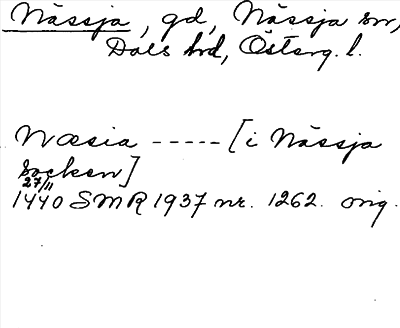 Nässja, gd, Nässja sn,
Dals hrd, Österg. l.
Næsia ----- [i Nässja
socken]
27/11
1440 SMR 1937 nr. 1262. orig.